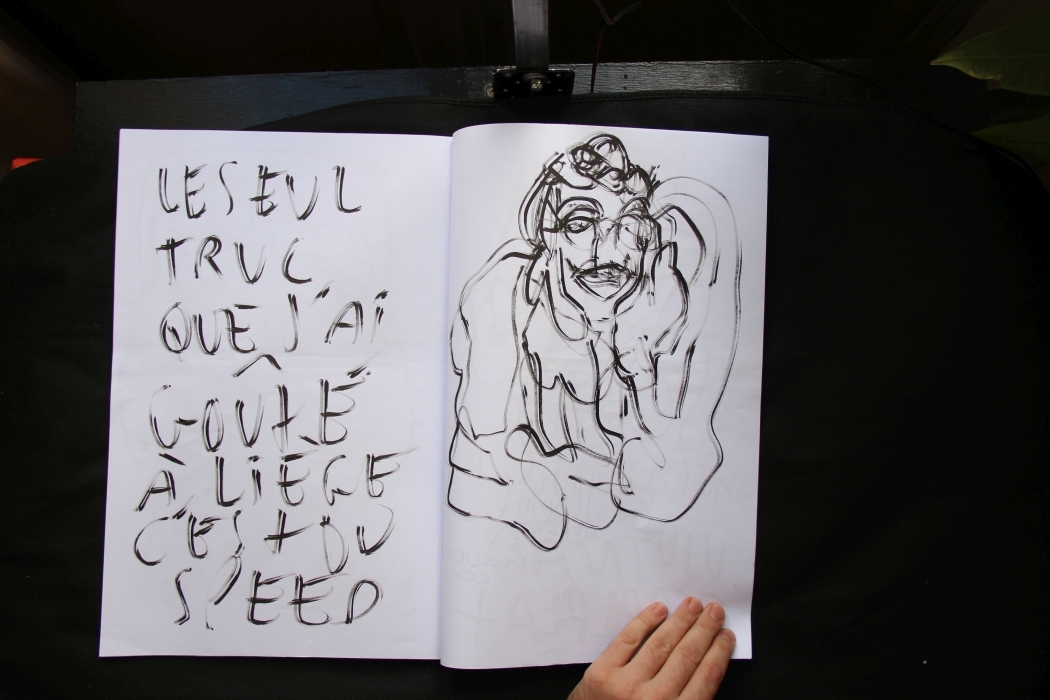 LE SEUL
TRUC
QUE J'Ai
GOÛTÉ
À LiÈGE
C'EST DU
SPEED